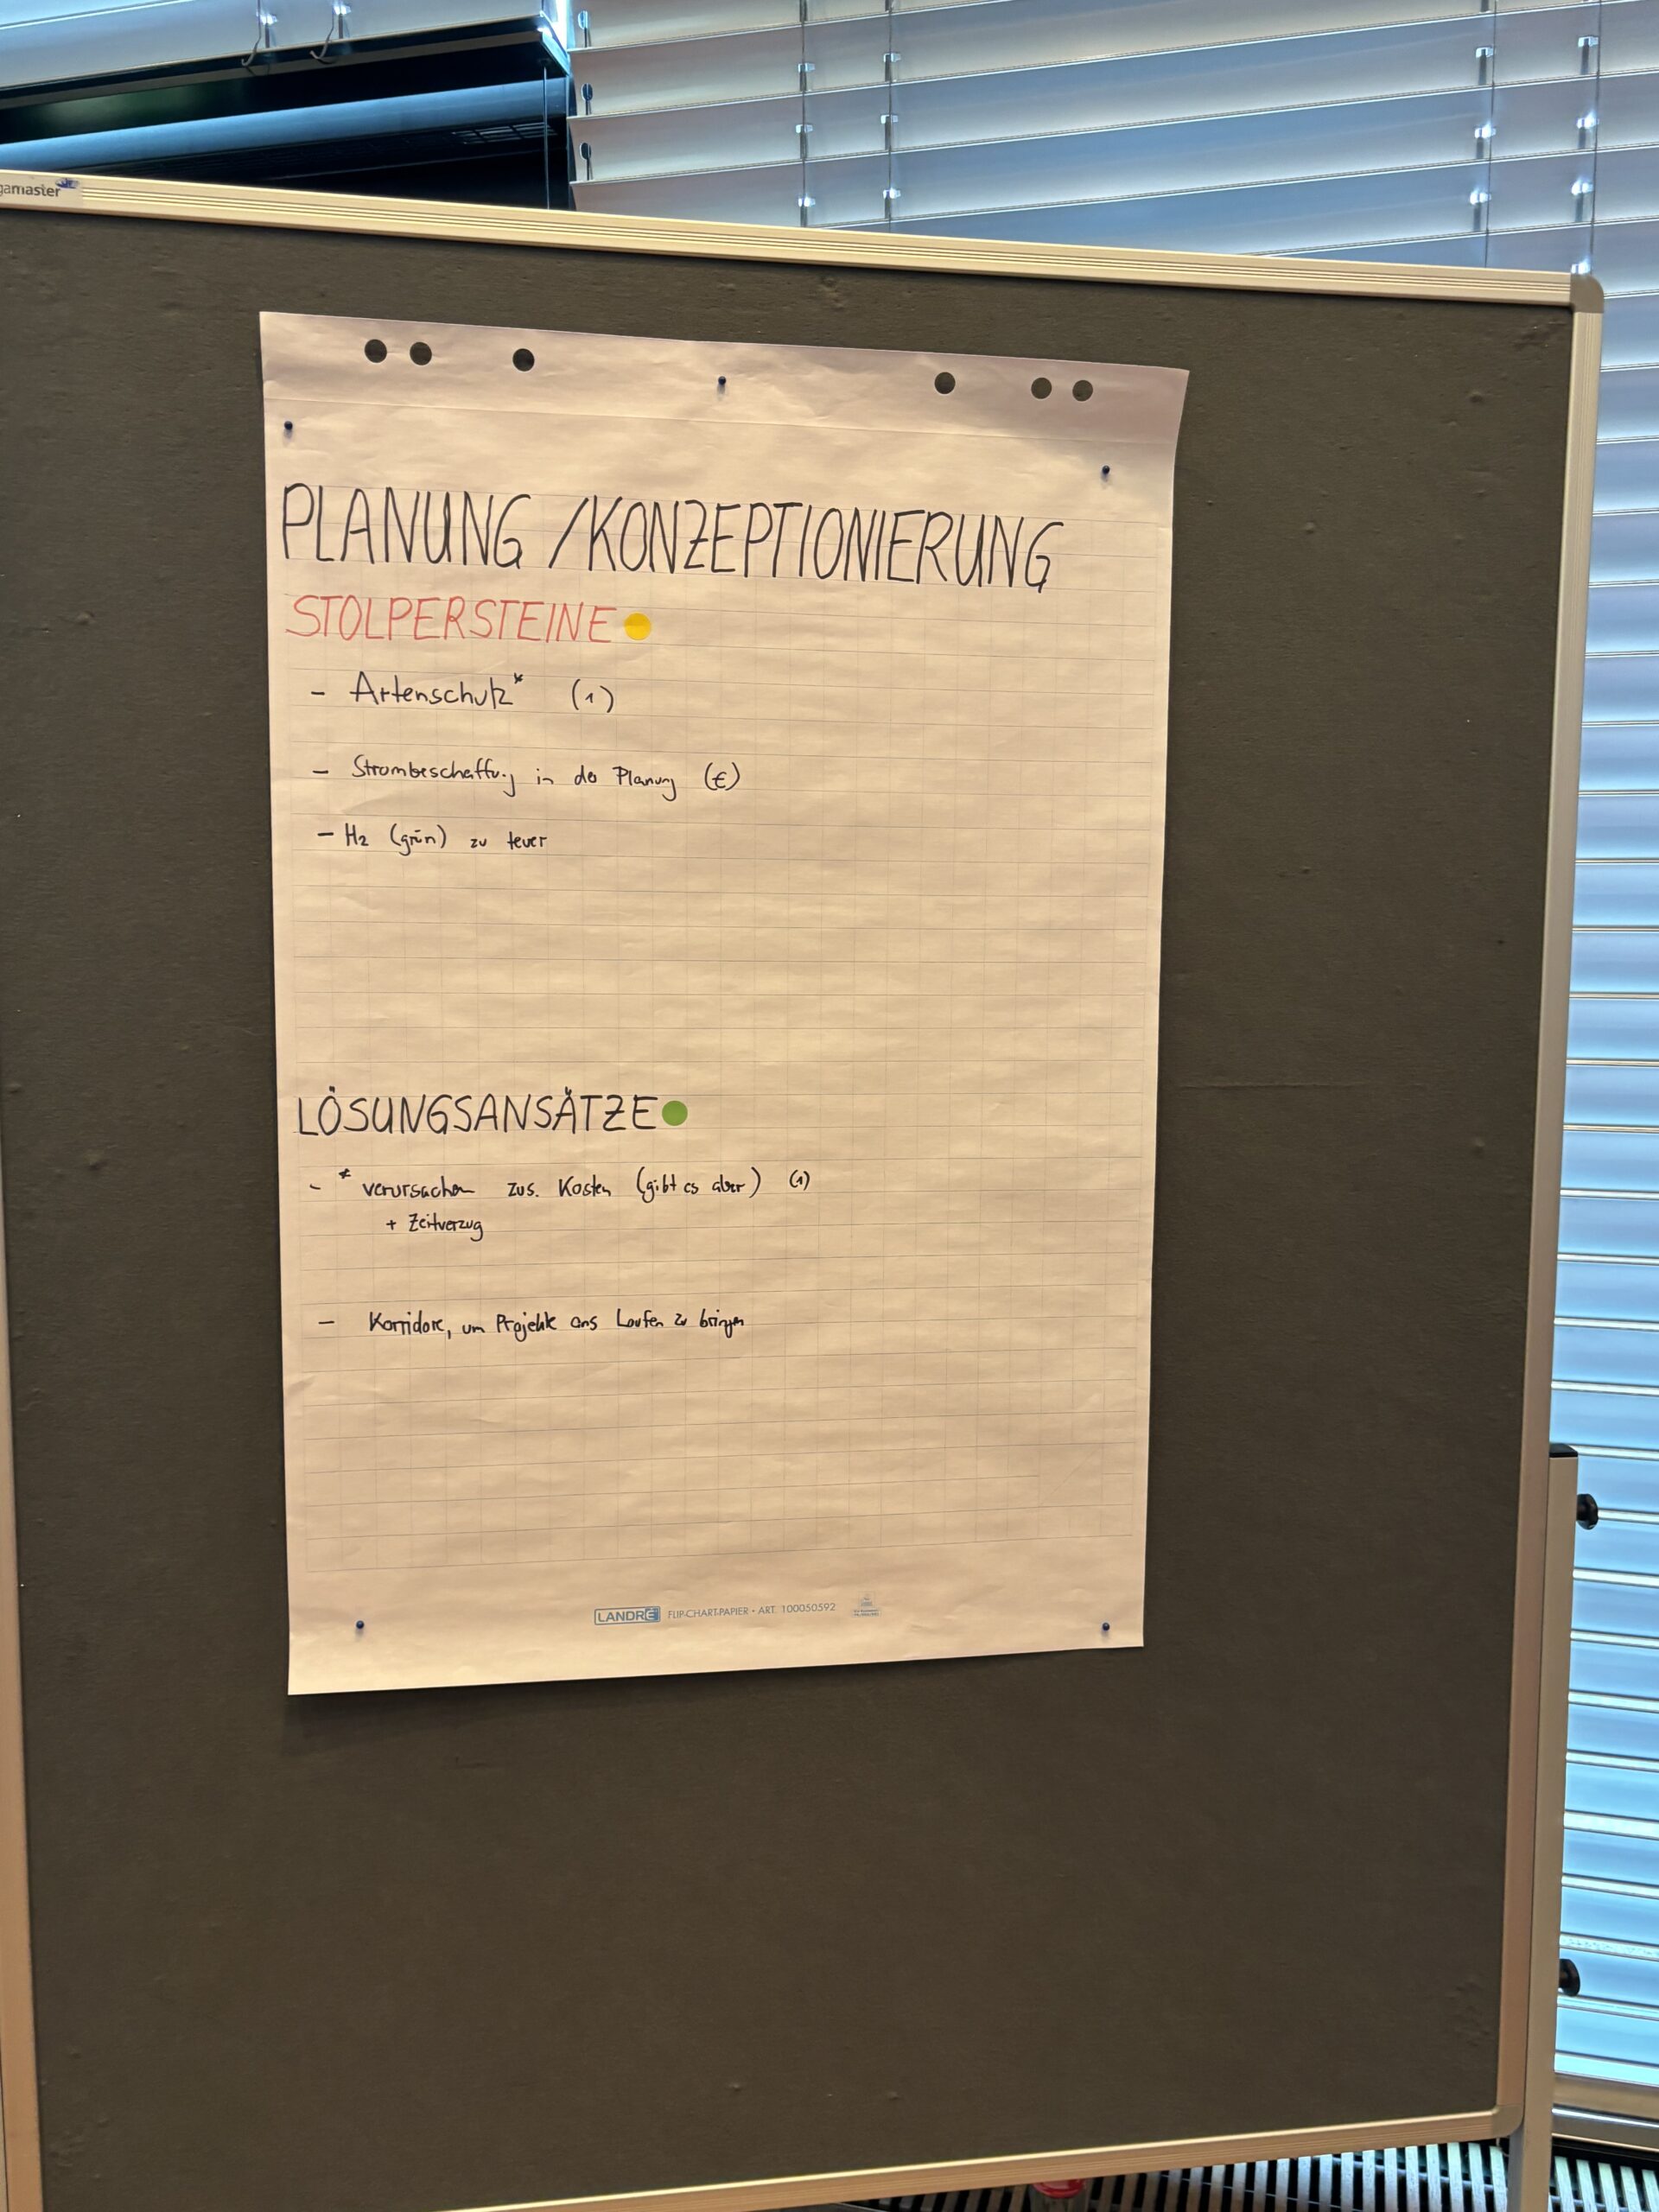 gamaster
PLANUNG /KONZEPTIONIERUNG
STOLPERSTEINE
- Artenschutz* (1)
- Strombeschaffung in der Planung (€)
- H2 (grün) zu teuer
LÖSUNGSANSÄTZE
- * verursachen zus. Kosten (gibt es aber) (1)
+ Zeitverzug
- Korridore, um Projekte ans Laufen zu bringen
LANDRÉ FLIP-CHART-PAPIER • ART. 100050592